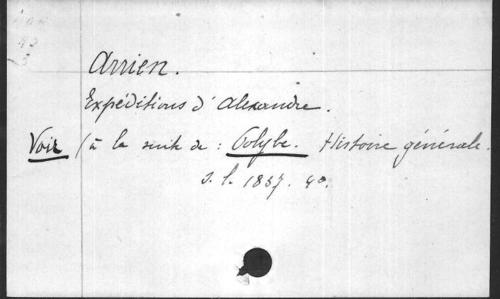 Arrien.
Expéditions d'Alexandre.
Voir (à la suite de : Polybe. Histoire générale.
s. l. 1837. 4o.